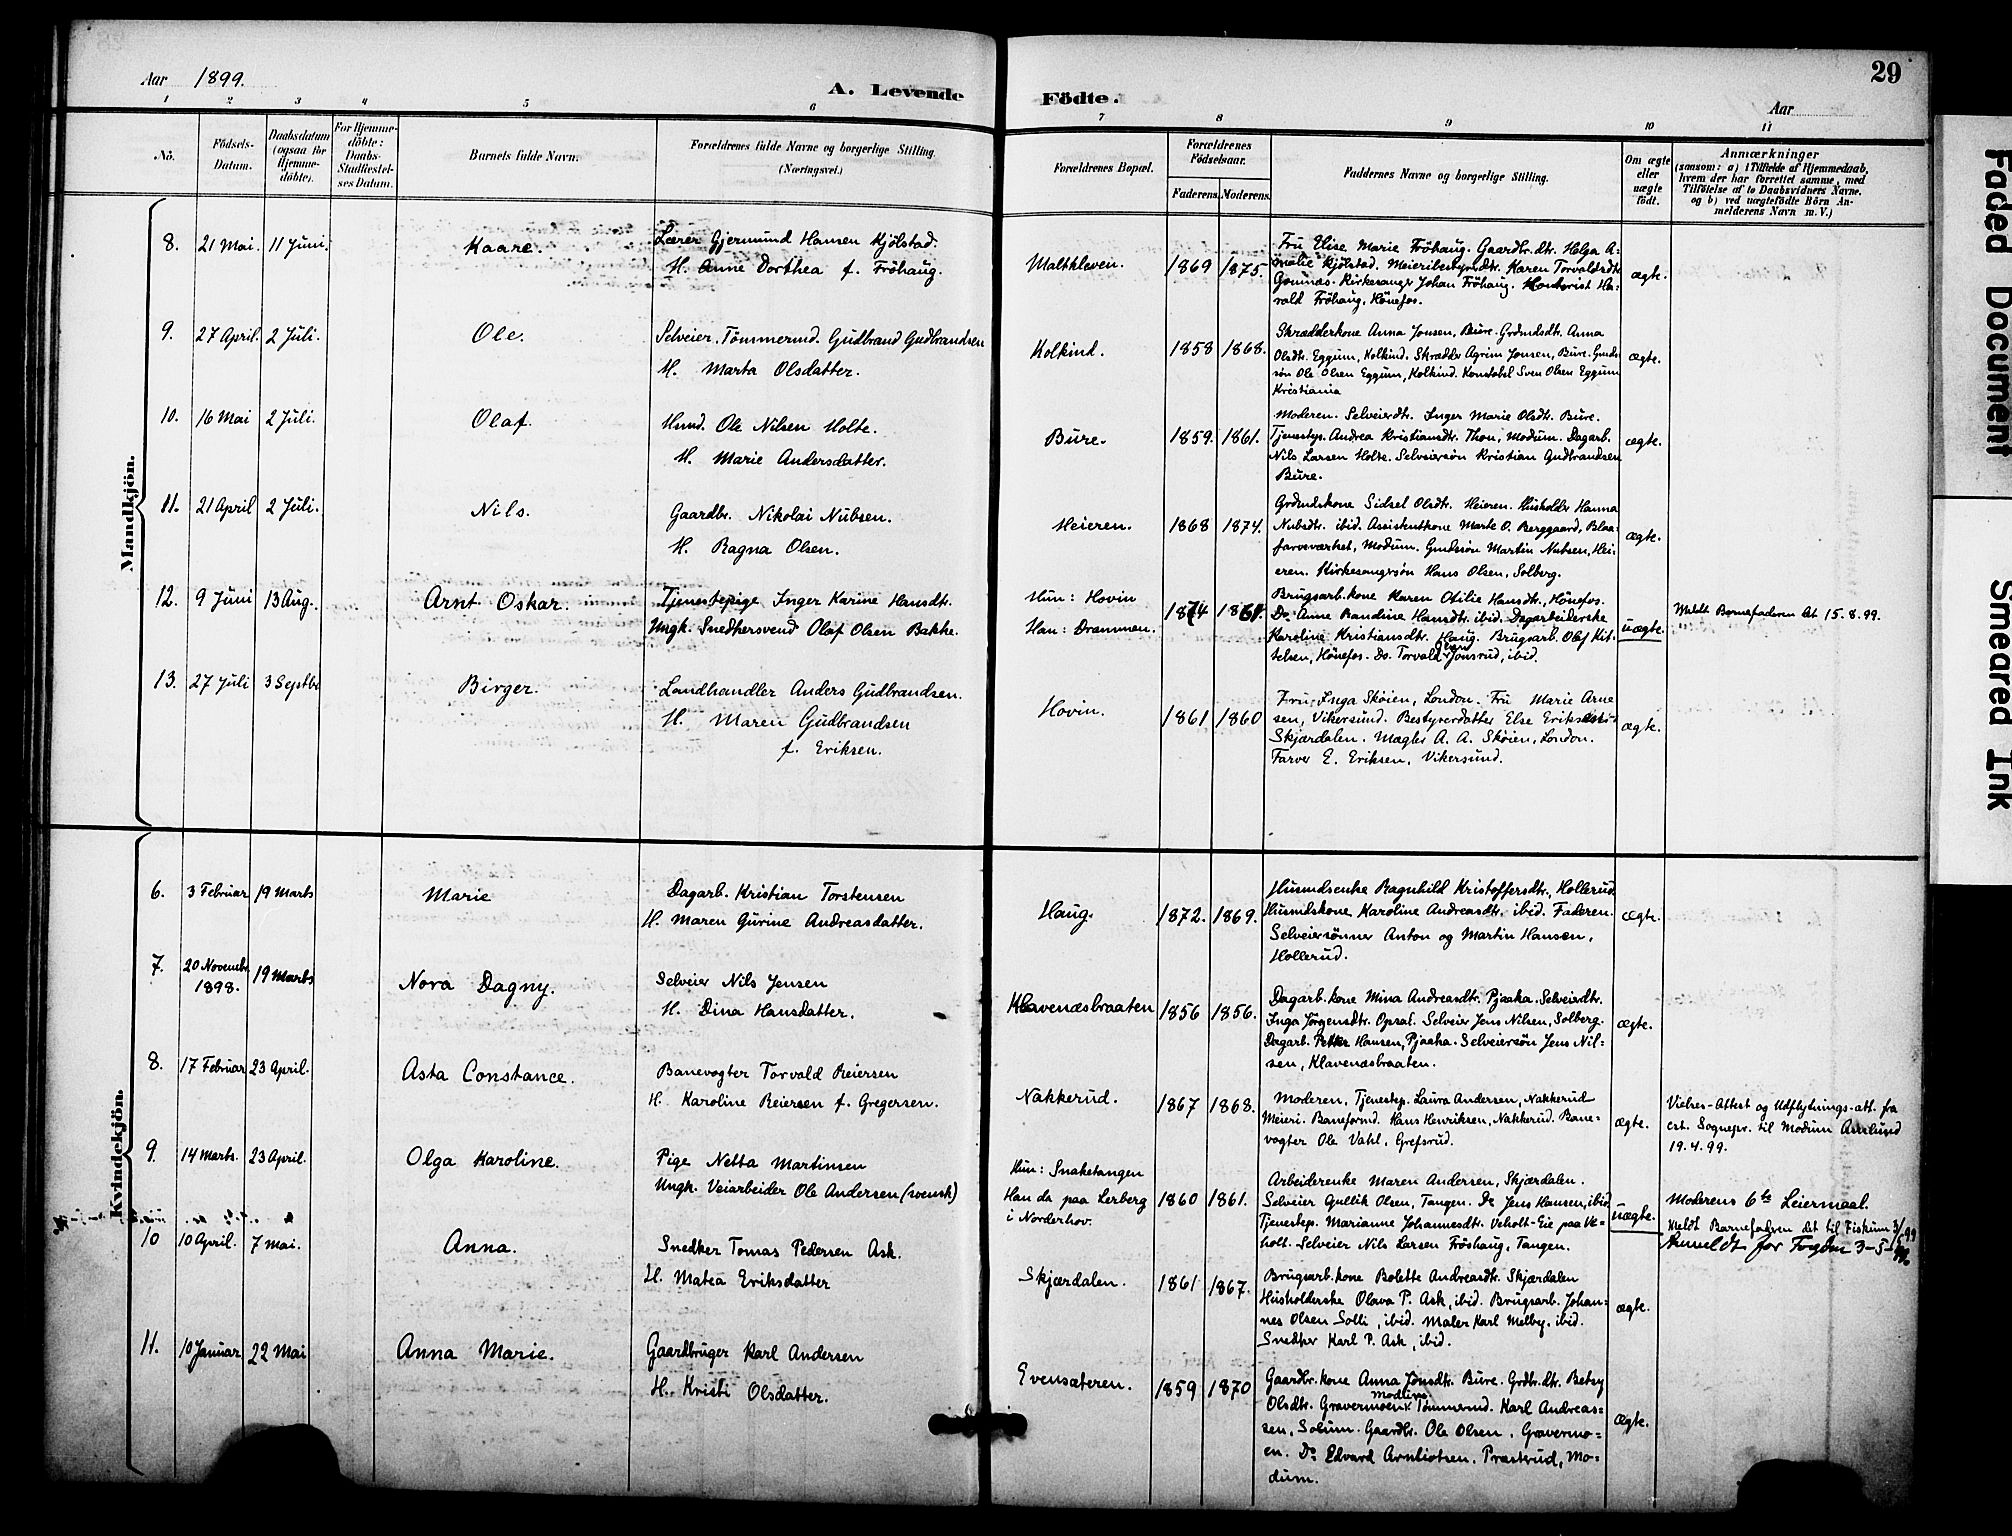 29
Aar 1899.
A. Levende Födte.
Aar
1 2 3 4 5 6 7 8 9 10 11
No.
Födsels-Datum.
Daabsdatum (ogsaa for Hjemme-döbte).
For Hjemme-döbte: Daabs-Stadfæstel-ses Datum.
Barnets fulde Navn.
Forældrenes fulde Navne og borgerlige Stilling. (Næringsvei.)
Forældrenes Bopæl.
Forældrenes Födselsaar.
Faderens. Moderens.
Faddernes Navne og borgerlige Stilling.
Om ægte eller uægte födt.
Anmærkninger
(saasom: a) i Tilfælde af Hjemmedaab,
hvem der har forrettet samme, med
Tilföielse af to Daabsvidners Navne.
og b) ved uægtefödte Börn An-
melderens Navn m. V.)
Mandkjön.
8. 21 Mai. 11 Juni. Kaare.
Lærer Gjermund Hansen Kjölstad.
H. Anne Dorthea f. Fröhaug.
Maltkleven. 1869 1875.
Fru Elise Marie Fröhaug. Gaardbr.dtr. Helga A-
malie Kjölstad. Meieribestyrerdtr. Karen Torvaldsdtr.
Gomnæs. Kirkesanger Johan Fröhaug. Kontorist Ha-
rald Fröhaug, Hönefos.
ægte.
9. 27 April. 2 Juli. Ole.
Selveier. Tömmermd. Gudbrand Gudbrandsen
H. Marta Olsdatter.
Kolkind. 1858 1868.
Skrædderkone Anna Jonsen, Bure. Grdmdsdtr. Anna
Olsdtr. Eggum, Kolkind. Skrædder Agrim Jonsen, Bure. Gmds-
søn Ole Olsen Eggum, Kolkind. Konstabel Sven Olsen Eggum
Kristiania
ægte.
10. 16 Mai 2 Juli. Olaf.
Husmd. Ole Nilsen Holte.
H. Marie Andersdatter.
Bure. 1859. 1861.
Moderen. Selveierdtr. Inger Marie Olsdtr. Bure.
Tjenestep. Andrea Kristiansdtr. Thon, Modum. Dagarb.
Nils Larsen Holte. Selveiersön Kristian Gudbrandsen
Bure.
ægte.
11. 21 April 2 Juli. Nils.
Gaardbr. Nikolai Nubsen.
H. Ragna Olsen.
Heieren. 1868 1874.
Grdmdskone Sidsel Olsdtr. Heieren. Husholder Hanna
Nubsdtr. ibid. Assistentkone Marte O. Berggaard, Blaa-
farveværket, Modum. Gmdssön Martin Nubsen, Hei-
eren. Kirkesangersön Hans Olsen, Solberg.
ægte.
12. 9 Juni 13 Aug. Arnt Oskar.
Tjenestepige Inger Karine Hansdtr.
Ungk. Snedkersvend Olaf Olsen Bakke.
Hun: Hovin
Han: Drammen.
Brugsarb.kone Karen Otilie Hansdtr., Hönefos.
Do. Anne Randine Hansdtr. ibid. Dagarbeiderske
Karoline Kristiansdtr. Haug. Brugsarb. Olaf Kit-
telsen, Hönefos. Do. Torvald Jonsrud, ibid.
uægte.
Meldt Barnefaderen At 15.8.99.
13. 27 Juli 3 Septbr Birger.
Landhandler Anders Gudbrandsen.
H. Maren Gudbrandsen
f. Eriksen.
Hovin. 1861 1860
Fru Inga Skøien, London. Fru Marie Arne
sen, Vikersund. Bestyrerdatter Else Eriksen
Skjærdalen. Mægler A. A. Skøien, London.
Farver E. Eriksen, Vikersund.
ægte.
Kvindekjön.
6. 3 Februar 19 Marts Marie
Dagarb. Kristian Torstensen
H. Maren Gurine Andreasdatter.
Haug. 1872. 1869.
Husmdsenke Ragnhild Kristoffersdtr., Hollerud
Husmdskone Karoline Andreasdtr. ibid. Faderen.
Selveiersönner Anton og Martin Hansen,
Hollerud.
ægte.
7. 20 Novembr. 1898. 19 Marts Nora Dagny.
Selveier Nils Jensen
H. Dina Hansdatter.
Klavenæsbraaten 1856 1856.
Dagarb.kone Mina Andreasdtr. Pjaaka. Selveierdtr.
Inga Jörgensdtr. Opsal. Selveier Jens Nilsen, Solberg.
Dagarb. Petter Hansen, Pjaaka. Selveiersön Jens Nil-
sen, Klavenæsbraaten.
ægte.
8. 17 Februar 23 April. Asta Constance.
Banevogter Torvald Reiersen
H. Karoline Reiersen f. Gregersen.
Nakkerud. 1867 1868.
Moderen, Tjenestep. Laura Andersen, Nakkerud
Meieri. Baneformd. Hans Henriksen, Nakkerud. Bane-
vogter Ole Vahl, Grefsrud.
ægte.
Vielses-Attest og Udflytnings-att. fra
est. Sognepr. til Modum Asmlund
19.4.99.
9. 14 Marts. 23 April. Olga Karoline.
Pige Netta Martinsen
Ungk. Veiarbeider Ole Andersen (svensk)
Hun: Snaketangen
Han da paa Lerberg
i Norderhov.
1860 1861.
Arbeiderenke Maren Andersen, Skjærdalen.
Selveier Gullik Olsen, Tangen. Do Jens Hansen, ibid
Tjenestep. Marianne Johannesdtr. Veholt-Eie paa Ve-
holt. Selveier Nils Larsen Fröshaug, Tangen.
uægte.
Moderens 6te Leiermaal.
Meldt Barnefaderen det til Fiskum 3/5 99
Anmeldt for Fogden 3-5-99.
10 10 April. 7 Mai. Anna.
Snedker Tomas Pedersen Ask.
H. Matea Eriksdatter
Skjærdalen. 1861 1867.
Brugsarb.kone Bolette Andreasdtr. Skjærdalen
Husholderske Olava P. Ask, ibid. Brugsarb. Johan-
nes Olsen Solli, ibid. Maler Karl Melby. ibid.
Snedker Karl P. Ask, ibid.
ægte.
11. 10 Januar 22 Mai Anna Marie.
Gaardbruger Karl Andersen
H. Kristi Olsdatter.
Evensæteren. 1859 1870
Gaardbr.kone Anna Jonsdtr. Bure. Grdbr.dtr. Betsy
Olsdtr. Gravermoen Modum. Tömmermd. Karl Andreas-
sen, Solum. Gaardbr. Ole Olsen, Gravermo-
en. Do Edvard Arnliotsen. Præsterud, Mo-
dum.
ægte.
Faded Document
Smeared Ink